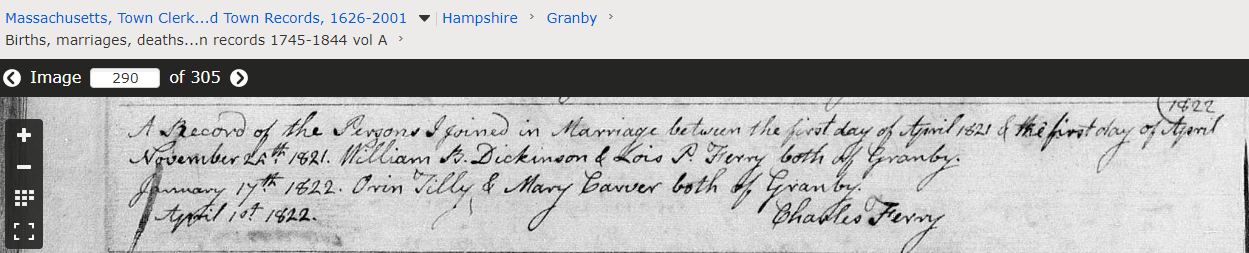 Massachusetts, Town Clerk...d Town Records, 1626-2001 Hampshire › Granby ›
Births, marriages, deaths...n records 1745-1844 vol A ›
Image 290 of 305
1822
A Record of the Persons I joined in Marriage between the first day of April 1821 & the first day of April
November 1821. William B. Dickinson & Lois P. Ferry both of Granby.
January 17th 1822. Orin Tilly & Mary Carver both of Granby.
April 1st 1822. Charles Ferry